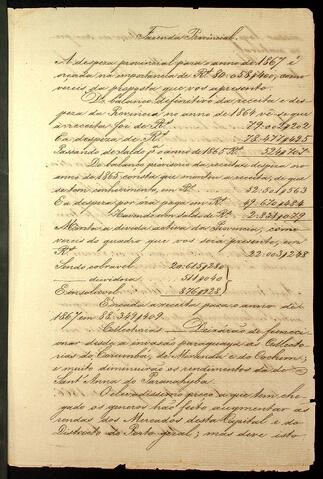 Fazenda Provincial.
A despeza provincial para o anno de 1867 é
orçada na importancia de Rs 80:058$400, como
vereis da proposta que vos apresento.
Do balanço definitivo da receita e des
peza da Provincia no anno de 1864 vê-se que
a receita foi de Rs 79:001$202
E a despeza no Rs 78:477$495
Passando de saldo pª o anno de 1865 Rs 524$707
Do balanço provisorio da receita e despeza no
anno de 1865 consta que montou a receita, de que
se tem conhecimento, em Rs 52:501$563
E a despeza por ora paga em Rs 49:670$484
Havendo um saldo de Rs 2:831$079
Monta a divida activa da Provincia, como
vereis do quadro que vos será presente, em
Rs 22:003$248
Sendo cobravel 20:615$280
duvidosa 511$040
E incobravel 876$928
É orçada a receita para o anno de
1867 em 88:349$409.
Collectorias. Deixarão de funccio
nar desde a invasão paraguaya as Collecto
rias de Corumbá, de Miranda e do Cochim;
e muito diminuirão os rendimentos da de
Sant'Anna do Paranahyba.
O elevadissimo preço a que tem che
gado os generos hão feito augmentar as
rendas dos Mercados desta Capital e do
Districto do Porto geral; mas deve isto